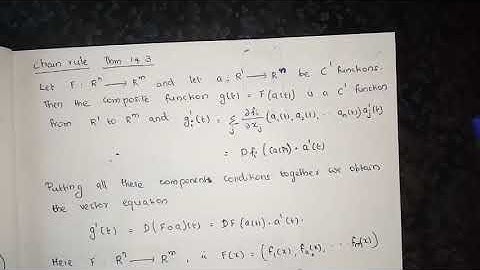 Chain rule Thm 14.3
Let F : Rⁿ → Rᵐ and let a : R' → Rⁿ be C' functions.
Then the composite function g(t) = F(a(t)) is a C' function
from R' to Rᵐ and g'ᵢ(t) = Σⱼ ∂fᵢ/∂xⱼ (a₁(t), a₂(t), ... aₙ(t)) a'ⱼ(t)
= Dfᵢ (a(t)) · a'(t)
Putting all these components conditions together we obtain
the vector equation
g'(t) = D(F∘a)(t) = DF(a(t)) · a'(t).
Here F Rⁿ → Rᵐ, is F(x) = (f₁(x), f₂(x), ... fₘ(x))